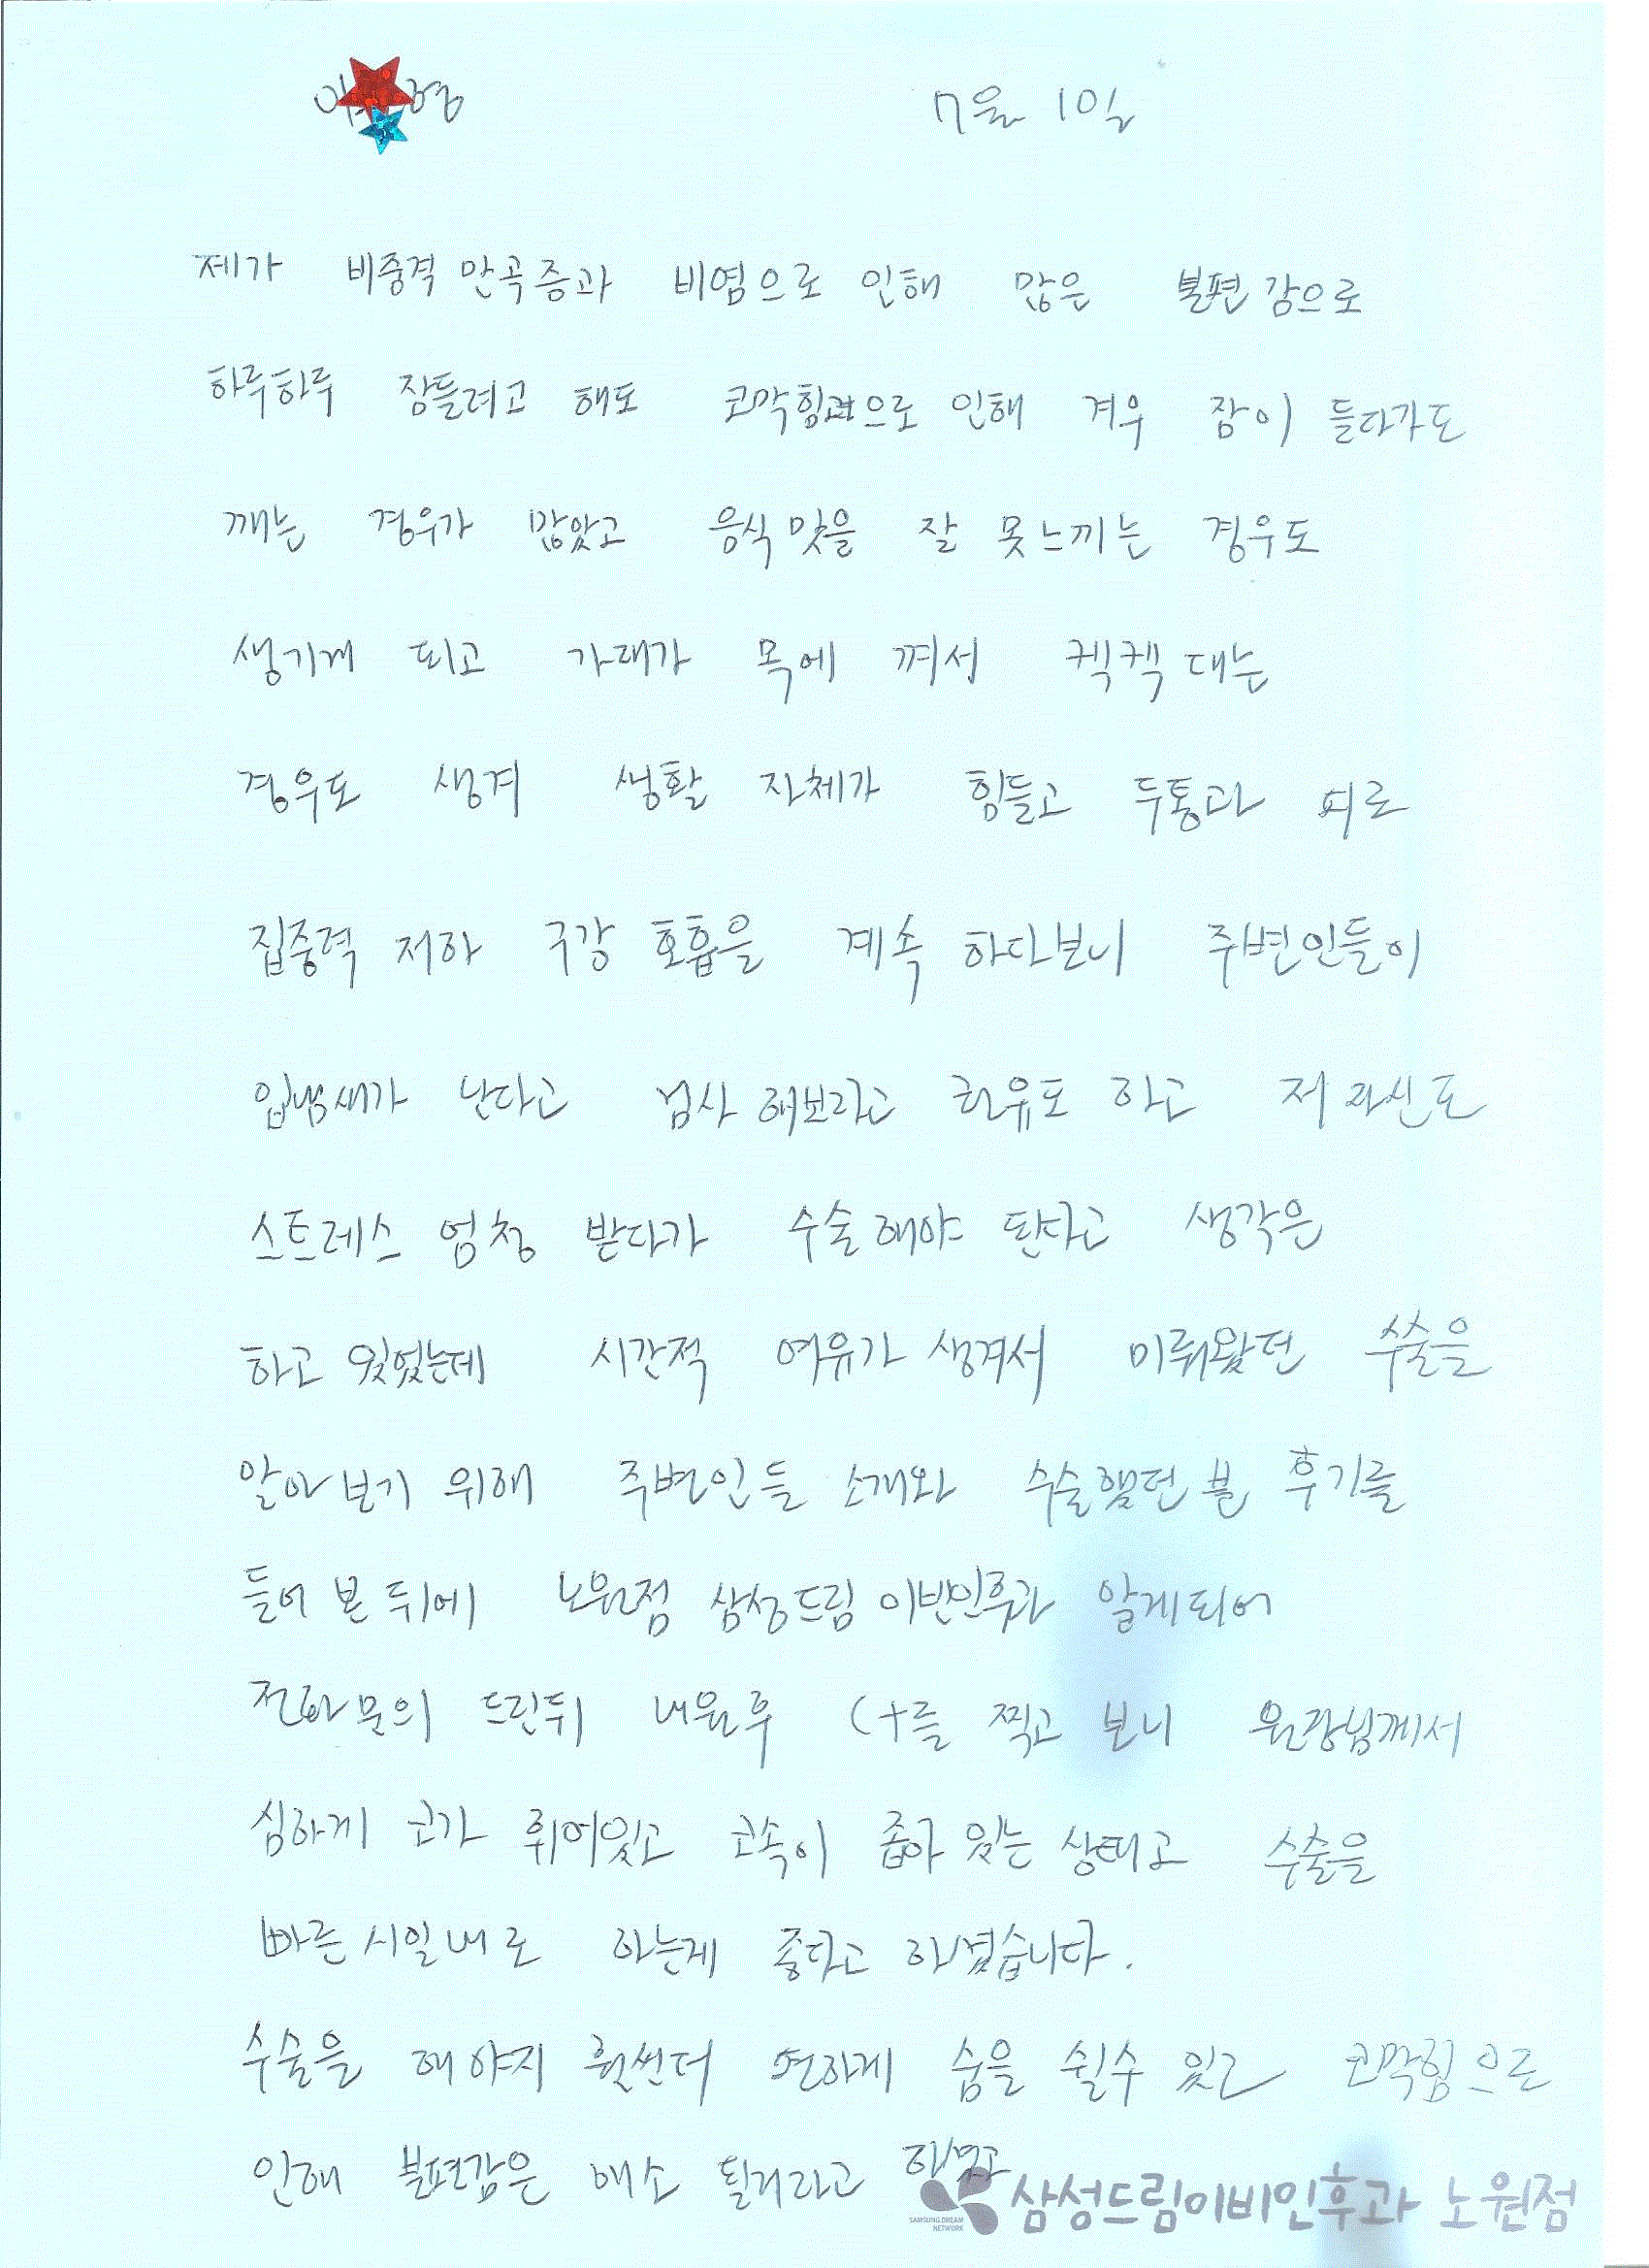 7월 10일
제가 비중격만곡증과 비염으로 인해 많은 불편감으로
하루하루 잠들려고 해도 코막힘으로 인해 겨우 잠이 들다가도
깨는 경우가 많았고 음식맛을 잘 못느끼는 경우도
생기게 되고 가래가 목에 껴서 켁켁대는
경우도 생겨 생활 자체가 힘들고 두통과 피로
집중력 저하 구강 호흡을 계속 하다보니 주변인들이
입냄새가 난다고 검사해보라고 권유도 하고 저 자신도
스트레스 엄청 받다가 수술해야 된다고 생각은
하고 있었는데 시간적 여유가 생겨서 미뤄왔던 수술을
알아보기 위해 주변인들 소개와 수술했던 분 후기를
들어 본 뒤에 노원점 삼성드림이비인후과 알게되어
전화문의 드린뒤 내원후 CT를 찍고 보니 원장님께서
심하게 코가 휘어있고 코속이 좁아 있는 상태고 수술을
빠른시일내로 하는게 좋다고 하셨습니다.
수술을 해야지 훨씬더 편하게 숨을 쉴수 있고 코막힘으로
인해 불편감은 해소 될거라고 하셨고
SAMSUNG DREAM NETWORK 삼성드림이비인후과 노원점